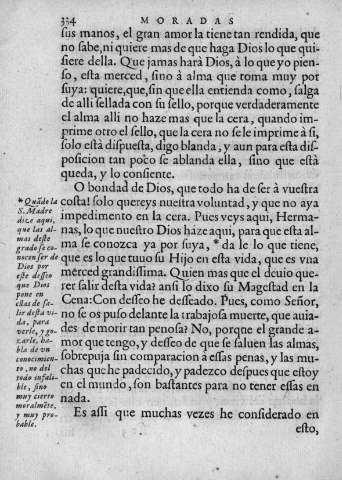 334 MORADAS
sus manos, el gran amor la tiene tan rendida, que
no sabe, ni quiere mas de que haga Dios lo que qui-
siere della. Que jamas harà Dios, à lo que yo pien-
so, esta merced, sino à alma que toma muy por
suya: quiere, que, sin que ella entienda como, salga
de alli sellada con su sello, porque verdaderamente
el alma alli no haze mas que la cera, quando im-
prime otro el sello, que la cera no se le imprime à si,
solo està dispuesta, digo blanda, y aun para esta dis-
posicion tan poco se ablanda ella, sino que està
queda, y lo consiente.
O bondad de Dios, que todo ha de ser à vuestra
costa! solo quereys nuestra voluntad, y que no aya
impedimento en la cera. Pues veys aqui, Herma-
nas, lo que nuestro Dios haze aqui, para que esta al-
ma se conozca ya por suya, * da le lo que tiene,
que es lo que tuuo su Hijo en esta vida, que es vna
merced grandissima. Quien mas que el deuio que-
rer salir desta vida? ansi lo dixo su Magestad en la
Cena: Con desseo he desseado. Pues, como Señor,
no se os puso delante la trabajosa muerte, que auia-
des de morir tan penosa? No, porque el grande a-
mor que tengo, y desseo de que se saluen las almas,
sobrepuja sin comparacion à essas penas, y las mu-
chas que he padecido, y padezco despues que estoy
en el mundo, son bastantes para no tener essas en
nada.
Es assi que muchas vezes he considerado en
esto,
* Quãdo la
S. Madre
dize aqui,
que las al-
mas deste
grado se co-
nocen ser de
Dios por
este desseo
que Dios
pone en
ellas de sa-
lir desta vi-
da, para
verle, y go-
zarle, ha-
bla de vn
conocimien-
to, no del
todo infali-
ble, sino
muy cierto
moralmẽte,
y muy pro-
bable.